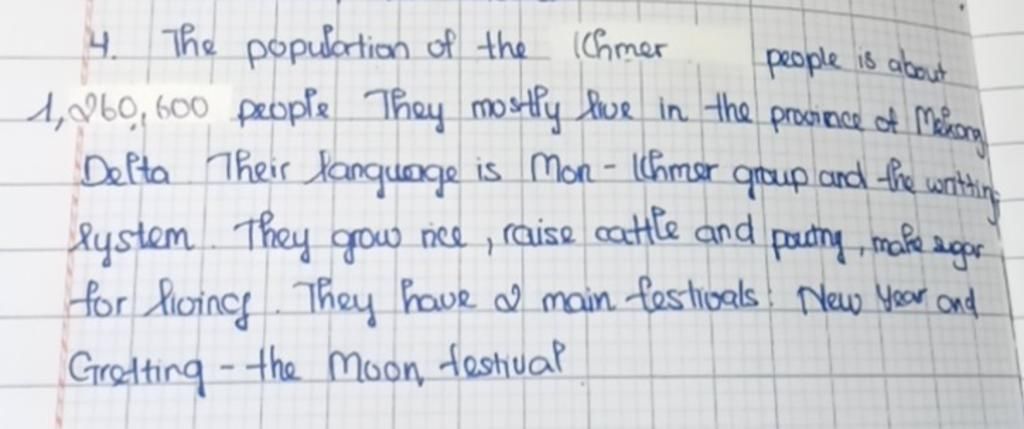 4. The population of the Khmer people is about
1,260,600 people They mostly live in the province of Mekong
Delta Their language is Mon - Khmer group and the writting
system. They grow rice, raise cattle and poutry, make sugar
for living. They have 2 main festivals: New Year and
Gretting - the Moon festival